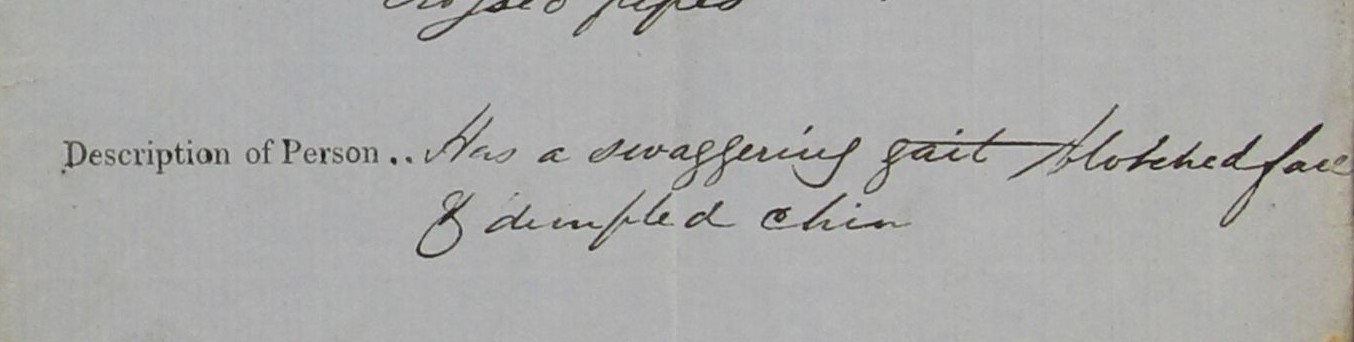 crossed pipes
Description of Person .. Has a swaggering gait blotched face
& dimpled chin